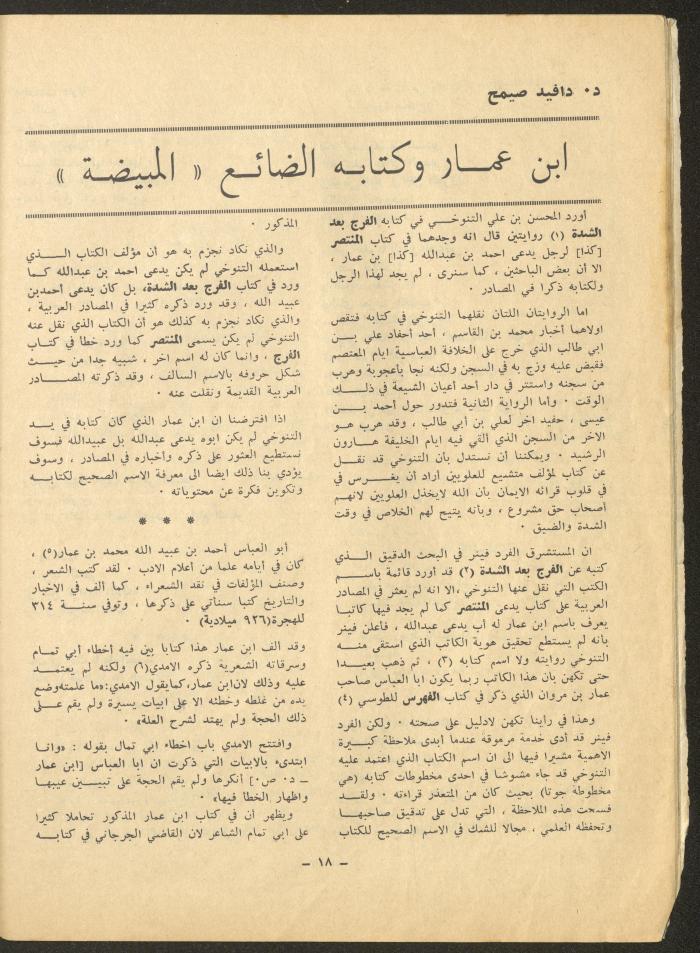 د٠ دافيد صيمح
ابن عمـــار وكتابـه الضائـع « المبيضـة »
أورد المحسن بن علي التنوخـي في كتابه الفرج بعد
الشدة (١) روايتين قال انه وجدهما في كتاب المنتصر
[كذا] لرجل يدعى احمد بن عبدالله [كذا] بن عمار ،
الا أن بعض الباحثين ، كما سنرى ، لم يجد لهذا الرجل
ولكتابه ذكرا في المصادر ٠
اما الروايتان اللتان نقلهما التنوخي في كتابه فتقص
اولاهما أخبار محمد بن القاسم ، أحد أحفاد علي بـــن
ابي طالب الذي خرج على الخلافة العباسية ايام المعتصم
فقبض عليه وزج به في السجن ولكنه نجا بأعجوبة وهرب
من سجنه واستتر في دار أحد أعيان الشيعة في ذلـــك
الوقت ٠ وأما الرواية الثانية فتدور حول أحمد بـــن
عيسى ، حفيد اخر لعلي بن أبي طالب ، وقد هرب هـو
الاخر من السجن الذي ألقي فيه ايام الخليفة هـــارون
الرشيد ٠ ويمكننا أن نستدل بأن التنوخي قد نقـــل
عن كتاب لمؤلف متشيع للعلويين أراد أن يغـــرس في
في قلوب قرائه الايمان بأن الله لايخذل العلويين لانهـم
أصحاب حق مشروع ، وبأنه يتيح لهم الخلاص في وقت
الشدة والضيق ٠
ان المستشرق الفرد فينر في البحث الدقيق الـــذي
كتبه عن الفرج بعد الشدة (٢) قد أورد قائمة باســـم
الكتب التي نقل عنها التنوخي ،الا انه لم يعثر في المصادر
العربية على كتاب يدعى المنتصر كما لم يجد فيها كاتبـا
يعرف باسم ابن عمار له أب يدعى عبدالله ، فأعلن فينر
بأنه لم يستطع تحقيق هوية الكاتب الذي استقى منـــه
التنوخي روايته ولا اسم كتابه (٣) ، ثم ذهب بعيـــدا
حتى تكهن بان هذا الكاتب ربما يكون ابا العباس صاحب
عمار بن مروان الذي ذكر في كتاب الفهرس للطوسي (٤)
وهذا في رأينا تكهن لادليل على صحته ٠ ولكن الفرد
فينر قد أدى خدمة مرموقة عندما أبدى ملاحظة كبيـــرة
الاهمية مشيرا فيها الى ان اسم الكتاب الذي اعتمد عليه
التنوخي قد جاء مشوشا في احدى مخطوطات كتابه (هي
مخطوطة جوتا) بحيث كان من المتعذر قراءته ٠ ولقـــد
فسحت هذه الملاحظة ، التي تدل على تدقيق صاحبهـا
وتحفظه العلمي ، مجالا للشك في الاسم الصحيح للكتاب
المذكور ٠
والذي نكاد نجزم به هو أن مؤلف الكتاب الـــذي
استعمله التنوخي لم يكن يدعى احمد بن عبدالله كـــما
ورد في كتاب الفرج بعد الشدة، بل كان يدعى أحمدبن
عبيد الله ، وقد ورد ذكره كثيرا في المصادر العربية ،
والذي نكاد نجزم به كذلك هو أن الكتاب الذي نقل عنه
التنوخي لم يكن يسمى المنتصر كما ورد خطأ في كتـــاب
الفرج ، وانما كان له اسم اخر ، شبيه جدا من حيـــث
شكل حروفه بالاسم السالف ، وقد ذكرته المصـــادر
العربية القديمة ونقلت عنه ٠
اذا افترضنا ان ابن عمار الذي كان كتابه في يـــد
التنوخي لم يكن ابوه يدعى عبدالله بل عبيدالله فسوف
نستطيع العثور على ذكره وأخباره في المصادر ، وسوف
يؤدي بنا ذلك ايضا الى معرفة الاسم الصحيح لكتابـــه
وتكوين فكرة عن محتوياته ٠
* * *
أبو العباس أحمد بن عبيد الله محمد بن عمار(٥) ،
كان في أيامه علما من أعلام الادب ٠ لقد كتب الشعر ،
وصنف المؤلفات في نقد الشعراء ، كما ألف في الاخبار
والتاريخ كتبا سنأتي على ذكرها ، وتوفي سنـــة ٣١٤
للهجرة(٩٢٦ ميلادية) ٠
وقد الف ابن عمار هذا كتابا بين فيه أخطاء أبي تمـام
وسرقاته الشعرية ذكره الامدي(٦) ولكنه لم يعتمـــد
عليه وذلك لان ابن عمار،كمايقول الامدي:«ما علمتهوضع
يده من غلطه وخطئه الا على ابيات يسيرة ولم يقم علـى
ذلك الحجة ولم يهتد لشرح العلة» ٠
وافتتح الامدي باب اخطاء ابي تمال بقوله : «وانـا
ابتدىء بالابيات التي ذكرت ان ابا العباس [ابن عمار
ـ د٠ ص٠] أنكرها ولم يقم الحجة على تبييـــن عيبهـا
واظهار الخطأ فيها» ٠
ويظهر أن في كتاب ابن عمار المذكور تحاملا كثيرا
على ابي تمام الشاعر لان القاضي الجرجاني في كتابـــه
ـ ١٨ ـ